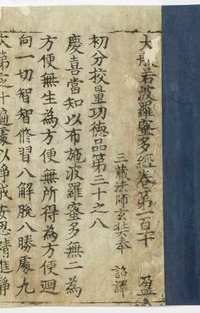 大般若波羅蜜多經卷第一百十 盈
三藏法師玄奘奉 詔譯
初分挍量功德品第三十之八
慶喜當知以布施波羅蜜多無二為
方便無生為方便無所得為方便迴
向一切智智修習八解脫八勝處九
次第定十遍處以淨戒安忍精進靜